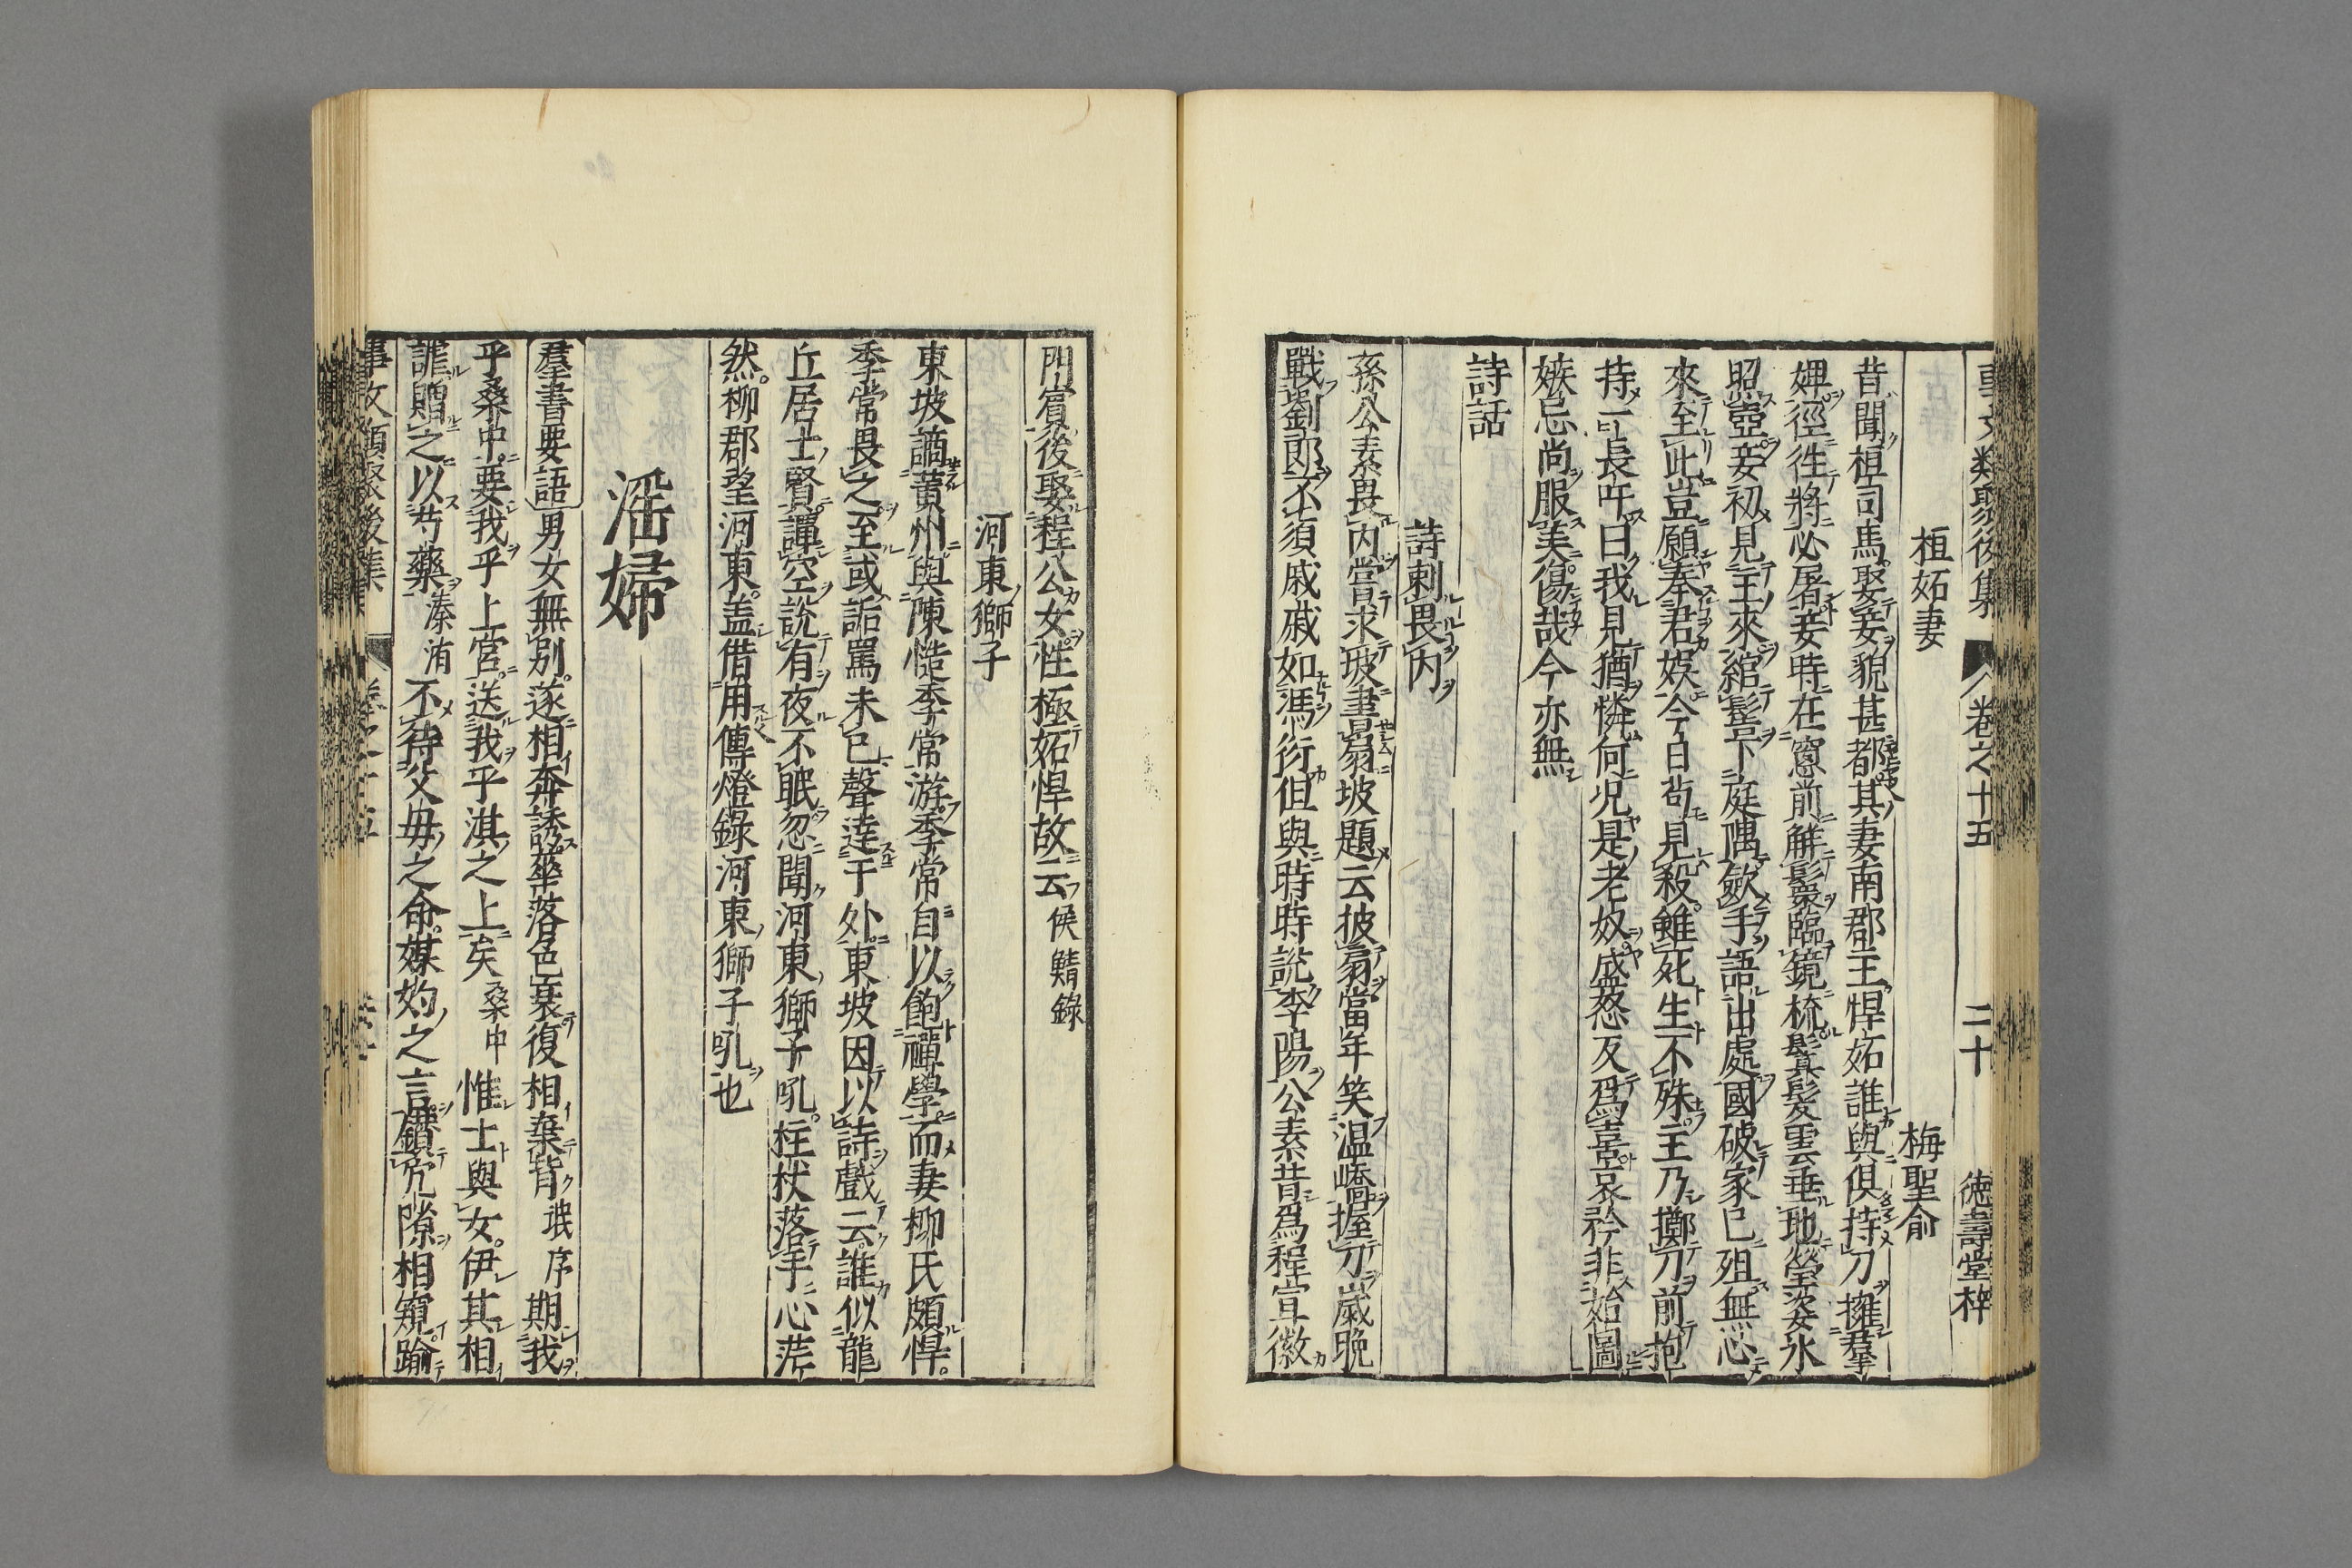 事文類聚後集 卷之十五 二十 德壽堂梓
桓妬妻 梅聖俞
昔聞桓司馬娶妾貌甚都其妻南郡主悍妬誰與俱持刀擁羣
婢徑往將必屠妾時在窻前解鬟臨鏡梳鬒髮雲垂地瑩姿氷
照壺妾初見主來綰髻下庭隅斂手語出處國破家已殂無心
來至此豈願奉君娛今日苟見殺雖死生不殊主乃擲刀前抱
持一長吁曰我見猶憐何况是老奴盛怒反爲喜哀矜非始圖
嫉忌尚服美傷哉今亦無
詩話
詩刺畏内
孫公素畏内嘗求坡書扇坡題云披扇當年笑温嶠握刀歲晚
戰劉郎不須戚戚如馮衍但與時時說李陽公素昔爲程宣徽
門賓後娶程公女性極妬悍故云 侯鯖錄
河東獅子
東坡謫黄州與陳慥季常游季常自以飽禪學而妻柳氏頗悍
季常畏之至或詬罵未已聲達于外東坡因以詩戲云誰似龍
丘居士賢譚空說有夜不眠忽聞河東獅子吼柱杖落手心茫
然柳郡望河東盖借用傳燈錄河東獅子吼也
滛婦
羣書要語 男女無別遂相奔誘華落色衰復相棄背 氓序 期我
乎桑中要我乎上宮送我乎淇之上矣 桑中 惟士與女伊其相
謔贈之以芍藥 溱洧 不待父母之命媒妁之言鑽穴隙相窺踰
事文類聚後集